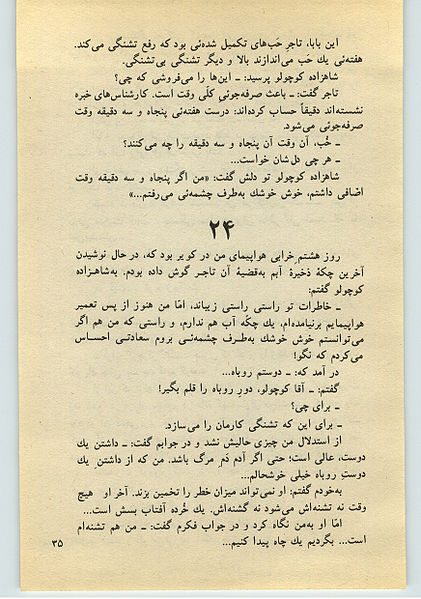 این بابا، تاجرِ حَب‌های تکمیل شده‌ئی بود که رفع تشنگی می‌کند.
هفته‌ئی یك حَب می‌اندازند بالا و دیگر تشنگی بی‌تشنگی.
شاهزاده کوچولو پرسید: ـ این‌ها را می‌فروشی که چی؟
تاجر گفت: ـ باعث صرفه‌جوئیِ کلّی وقت است. کارشناس‌های خبره
نشسته‌اند دقیقاً حساب کرده‌اند: درست هفته‌ئی پنجاه و سه دقیقه وقت
صرفه‌جوئی می‌شود.
ـ خُب، آن وقت آن پنجاه و سه دقیقه را چه می‌کنند؟
ـ هر چی دل‌شان خواست...
شاهزاده کوچولو تو دلش گفت: «من اگر پنجاه و سه دقیقه وقت
اضافی داشتم، خوش خوشك به‌طرف چشمه‌ئی می‌رفتم...»
۲۴
روز هشتم خرابی هواپیمای من در کویر بود که، در حال نوشیدن
آخرین چکۀ ذخیرۀ آبم به‌قضیۀ آن تاجر گوش داده بودم. به‌شاهزاده
کوچولو گفتم:
ـ خاطرات تو راستی راستی زیباند، امّا من هنوز از پس تعمیر
هواپیمایم برنیامده‌ام، یك چکّه آب هم ندارم، و راستی که من هم اگر
می‌توانستم خوش خوشك به‌طرف چشمه‌ئی بروم سعادتی احساس
می‌کردم که نگو!
در آمد که: ـ دوستم روباه...
گفتم: ـ آقا کوچولو، دورِ روباه را قلم بگیر!
ـ برای چی؟
ـ برای این که تشنگی کارمان را می‌سازد.
از استدلال من چیزی حالیش نشد و در جوابم گفت: ـ داشتن یك
دوست، عالی است؛ حتی اگر آدم دَمِ مرگ باشد. من که از داشتن یك
دوستِ روباه خیلی خوشحالم...
به‌خودم گفتم: او نمی‌تواند میزان خطر را تخمین بزند. آخر او هیچ
وقت نه تشنه‌اش می‌شود نه گشنه‌اش. یك خُرده آفتاب بسش است...
امّا او به‌من نگاه کرد و در جواب فکرم گفت: ـ من هم تشنه‌ام
است... بگردیم یك چاه پیدا کنیم...
۳۵